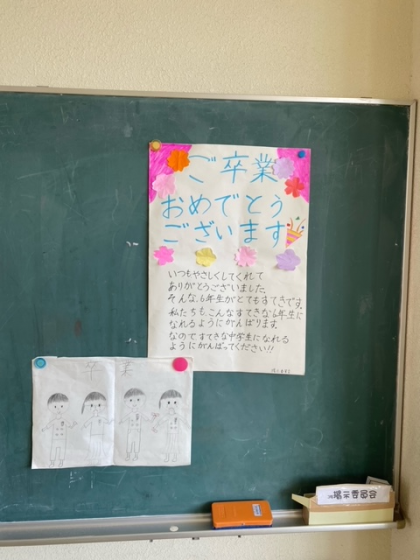 ご卒業
おめでとう
ございます
いつもやさしくしてくれて
ありがとうございました。
そんな、6年生がとてもすてきです。
私たちも、こんなすてきな6年生に
なれるようにがんばります。
なのですてきな中学生になれる
ようにがんばってください!!
卒業